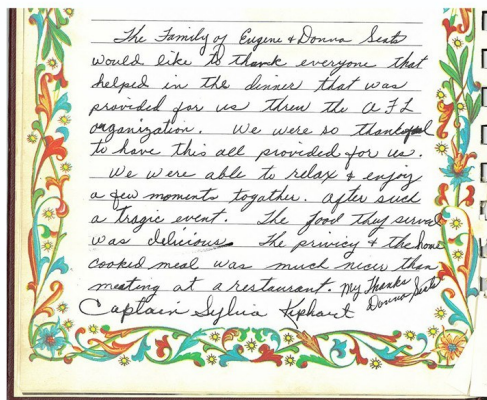 The Family of Eugene & Donna Sents
would like to thank everyone that
helped in the dinner that was
provided for us threw the AFL
organization. We were so thankful
to have this all provided for us.
We were able to relax & enjoy
a few moments together. After such
a tragic event. The food they served
was delicious. The privicy & the home
cooked meal was much nicer than
meeting at a restaurant. My Thanks
Donna Sents
Captain Sylvia Kiphart